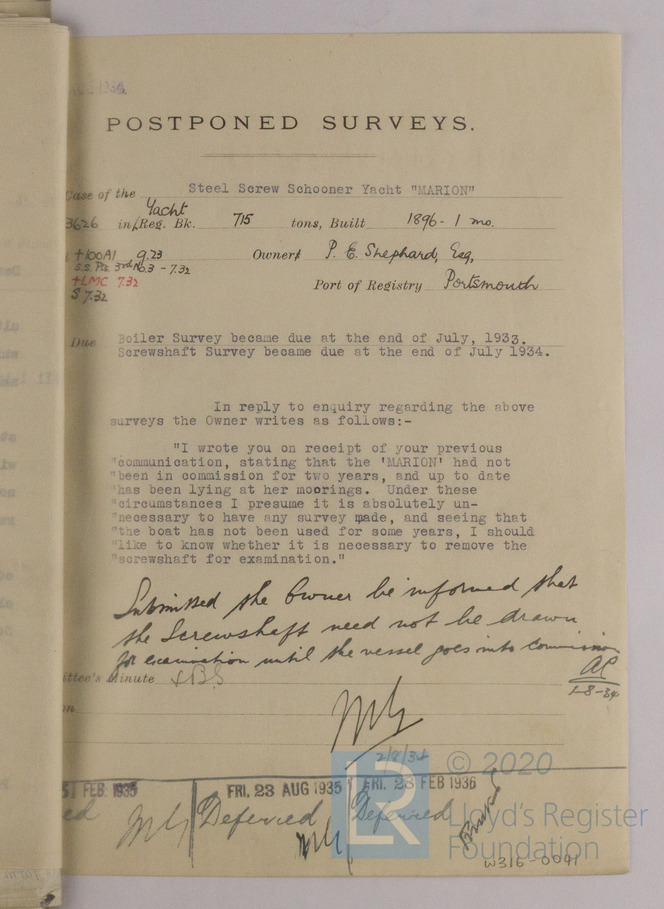 POSTPONED SURVEYS.
Case of the Steel Screw Schooner Yacht "MARION"
Yacht
3626 in Reg. Bk. 715 tons, Built 1896 - 1 mo.
+100A1 9.23 Owner P. E. Shephard, Esq,
S.S. Pts. 3rd No.3 - 7.32
Port of Registry Portsmouth
+LMC 7.32
S 7.32
Due Boiler Survey became due at the end of July, 1933.
Screwshaft Survey became due at the end of July 1934.
In reply to enquiry regarding the above
surveys the Owner writes as follows:-
"I wrote you on receipt of your previous
"communication, stating that the 'MARION' had not
"been in commission for two years, and up to date
"has been lying at her moorings. Under these
"circumstances I presume it is absolutely un-
"necessary to have any survey made, and seeing that
"the boat has not been used for some years, I should
"like to know whether it is necessary to remove the
"screwshaft for examination."
Submitted the Owner be informed that
the Screwshaft need not be drawn
for examination until the vessel goes into commission
ittee's Minute
1-8-34
2/8/34
© 2020
FEB 1935 FRI. 23 AUG 1935 FRI. 23 FEB 1936
ed Deferred Deferred
Lloyd's Register
Foundation
W316-0041